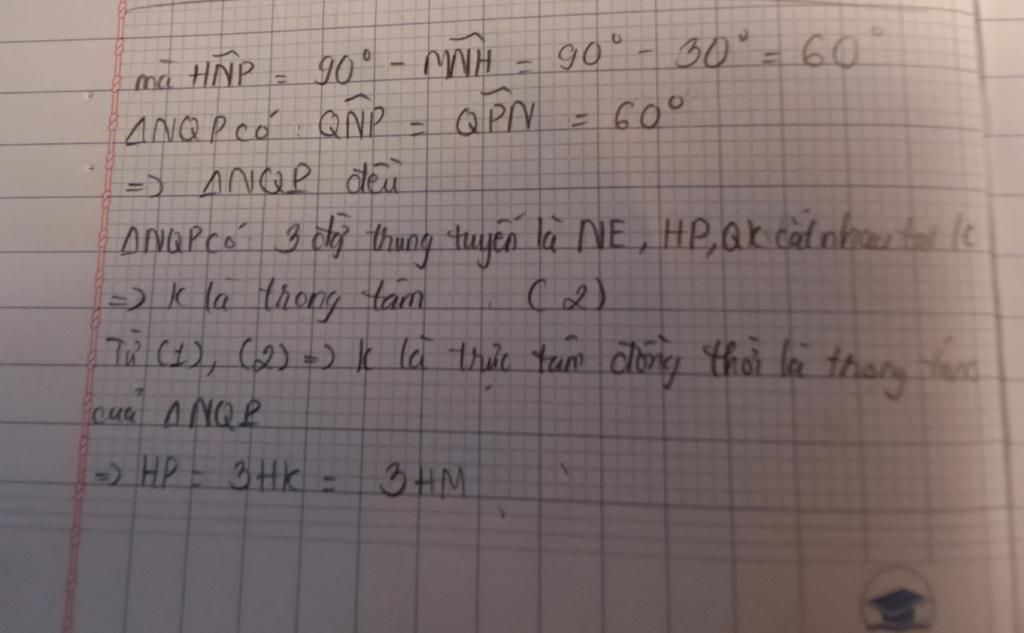 mà HN̂P = 90° - MN̂H = 90° - 30° = 60°
ΔNQP có: QN̂P = QP̂N = 60°
=> ΔNQP đều
ΔNQP có 3 đg thung tuyến là NE, HP, QK cắt nhau tại K
=> K là thong tâm (2)
Từ (1), (2) => K là thực tâm đồng thời là thong tâm
của ΔNQP
=> HP = 3HK = 3HM